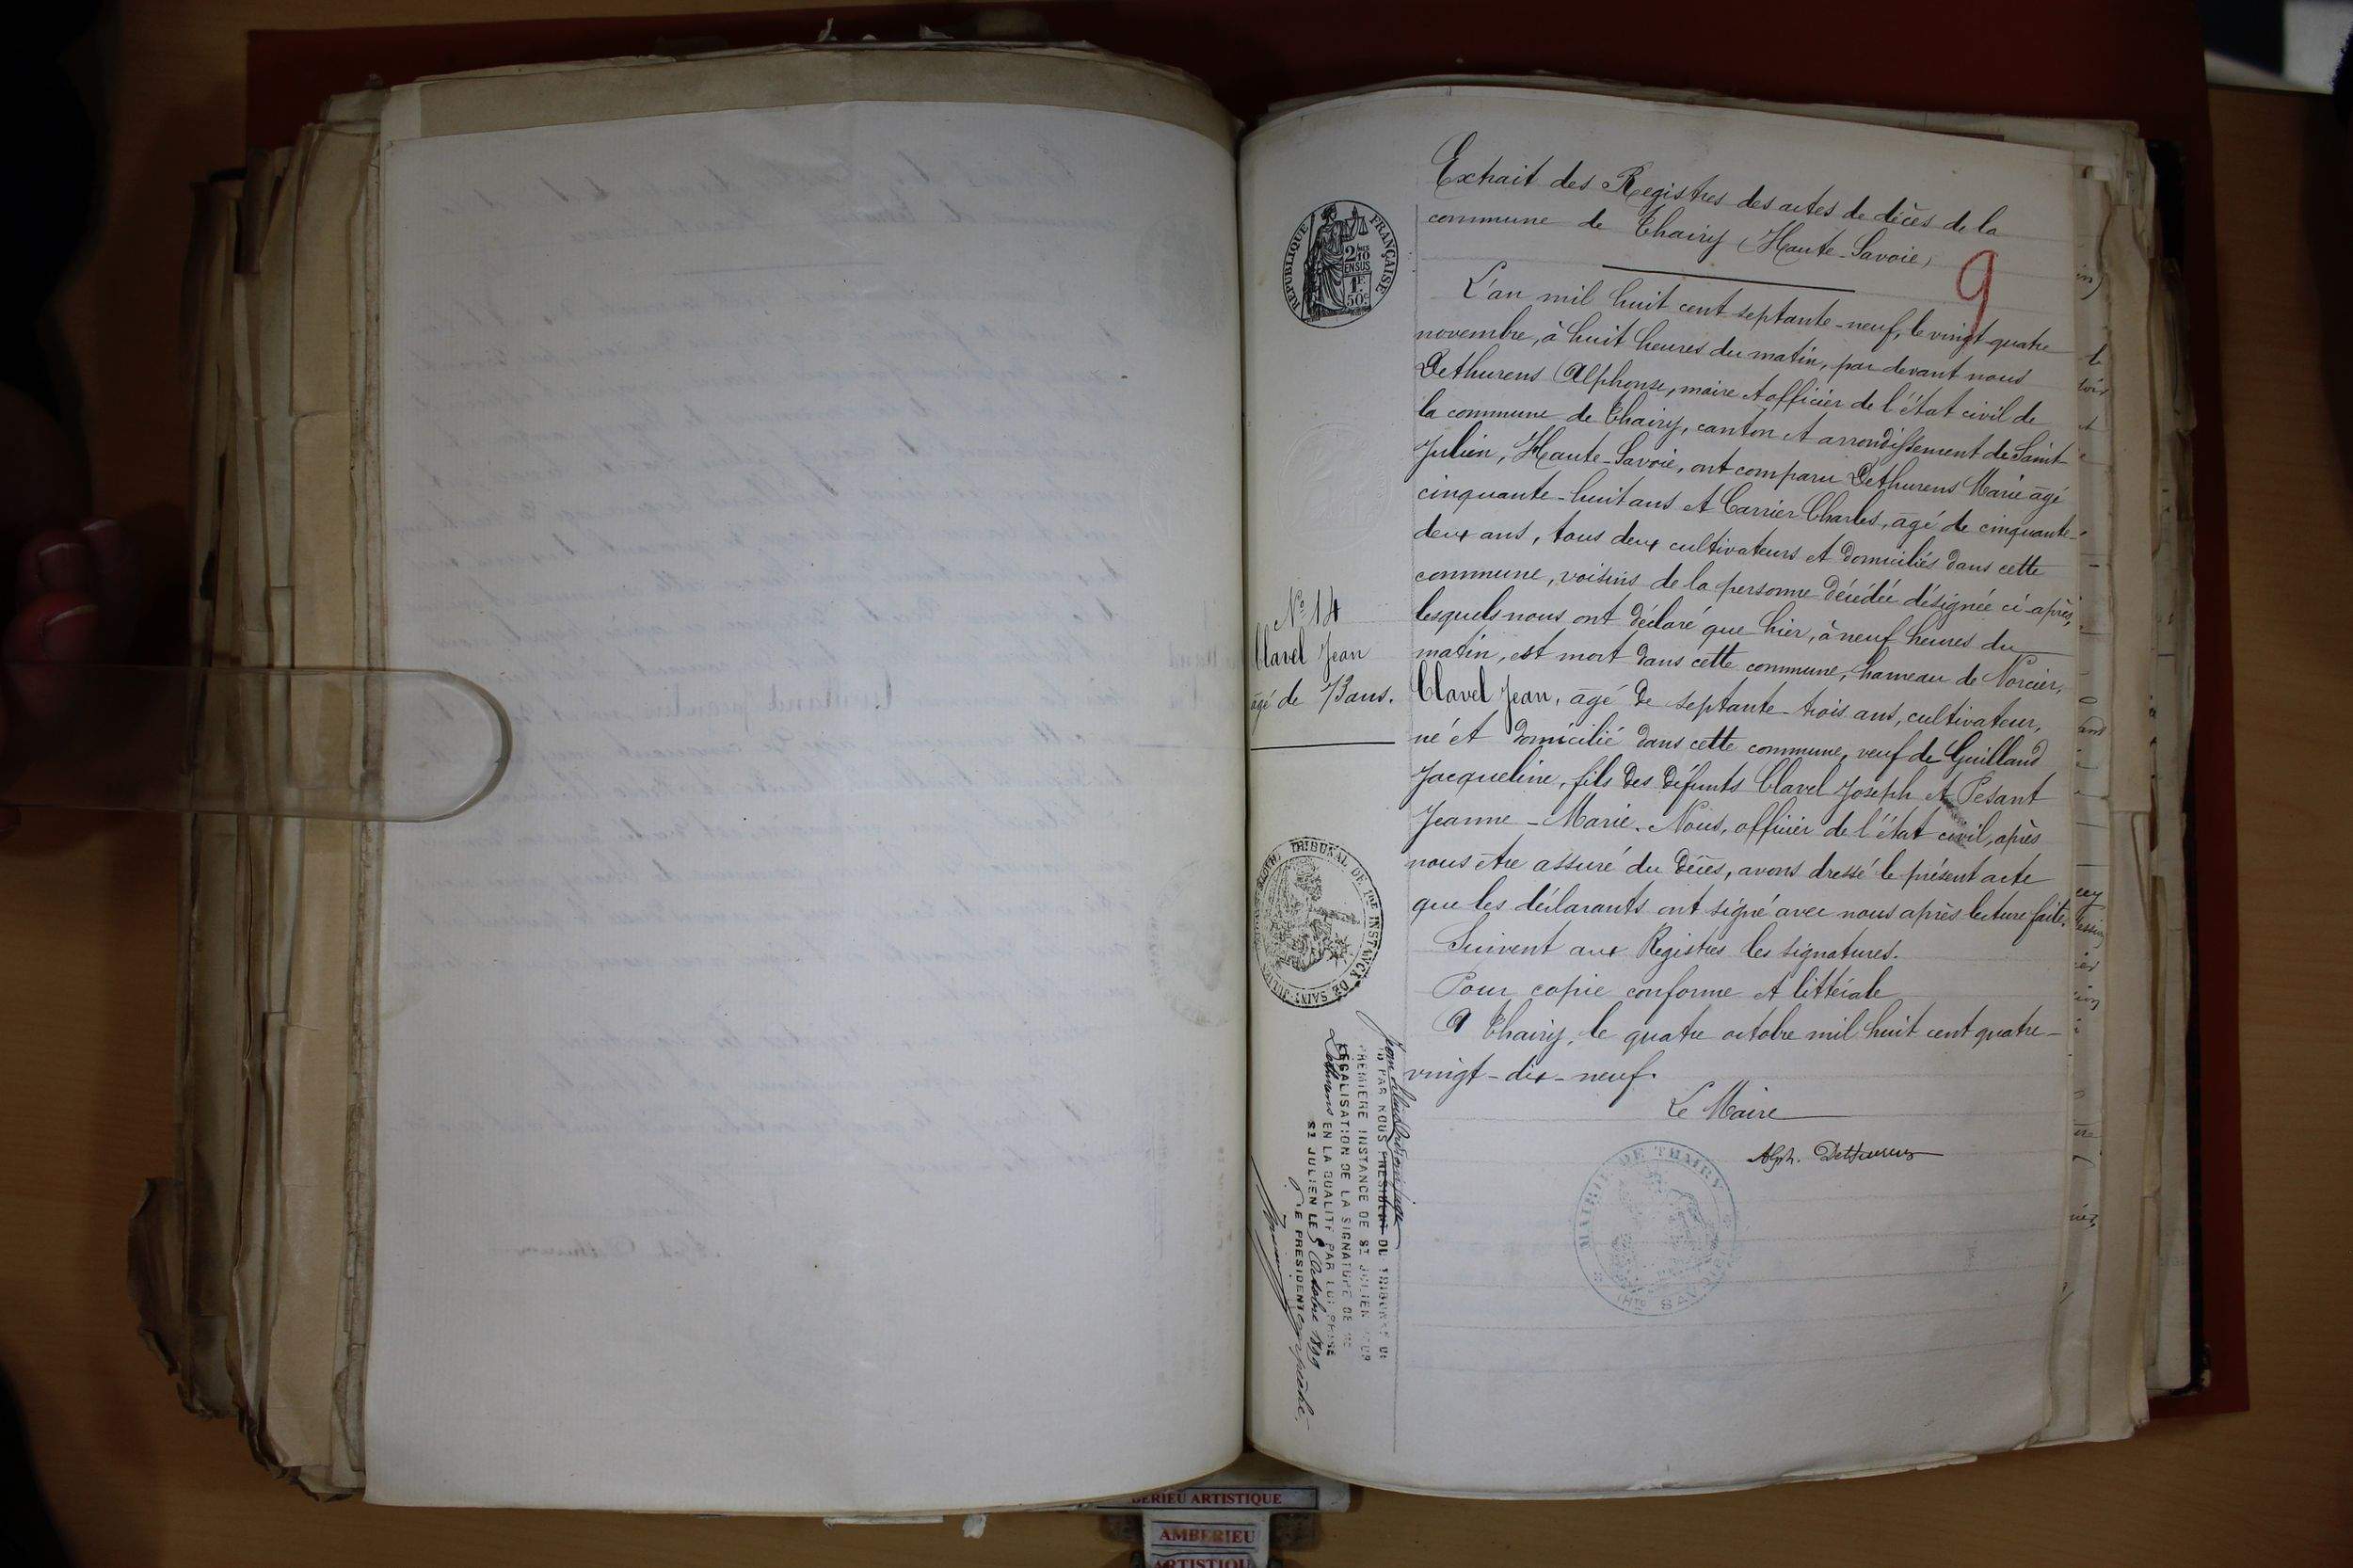 Extrait des Registres des actes de décès de la
commune de Thairy (Haute-Savoie)
9
RÉPUBLIQUE FRANÇAISE
2/10
EN SUS
1F
50c
L'an mil huit cent septante-neuf, le vingt-quatre
novembre, à huit heures du matin, par devant nous
Dethurens Alphonse, maire et officier de l'état civil de
la commune de Thairy, canton et arrondissement de Saint-
Julien, Haute-Savoie, ont comparu Dethurens Marie âgé
cinquante-huit ans et Carrier Charles, âgé de cinquante-
deux ans, tous deux cultivateurs et domiciliés dans cette
commune, voisins de la personne décédée désignée ci-après,
lesquels nous ont déclaré que hier, à neuf heures du
matin, est mort dans cette commune, hameau de Norcier,
Clavel Jean, âgé de septante-trois ans, cultivateur,
né et domicilié dans cette commune, veuf de Guilland
Jacqueline, fils des défunts Clavel Joseph et Pesant
Jeanne-Marie. Nous, officier de l'état civil, après
nous être assuré du décès, avons dressé le présent acte
que les déclarants ont signé avec nous après lecture faite.
Suivent aux Registres les signatures.
Pour copie conforme et littérale
A Thairy, le quatre octobre mil huit cent quatre-
vingt-dix-neuf.
Le Maire
Alph. Dethurens
MAIRIE DE THAIRY
(HTE SAVOIE)
No 14
Clavel Jean
âgé de 73 ans.
TRIBUNAL DE 1RE INSTANCE DE SAINT-JULIEN
PAR NOUS PRÉSIDENT DU TRIBUNAL DE
PREMIERE INSTANCE DE ST JULIEN POUR
LÉGALISATION DE LA SIGNATURE DE MR
Dethurens EN LA QUALITÉ PAR LUI PRISE
ST JULIEN LE 5 Octobre 1899
LE PRESIDENT empêché.
AMBERIEU ARTISTIQUE
AMBERIEU
ARTISTIQUE